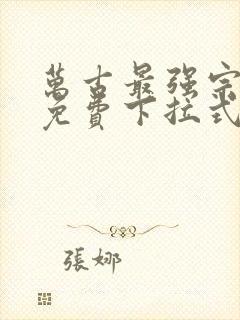 萬古最强宗
免費下拉式
張娜